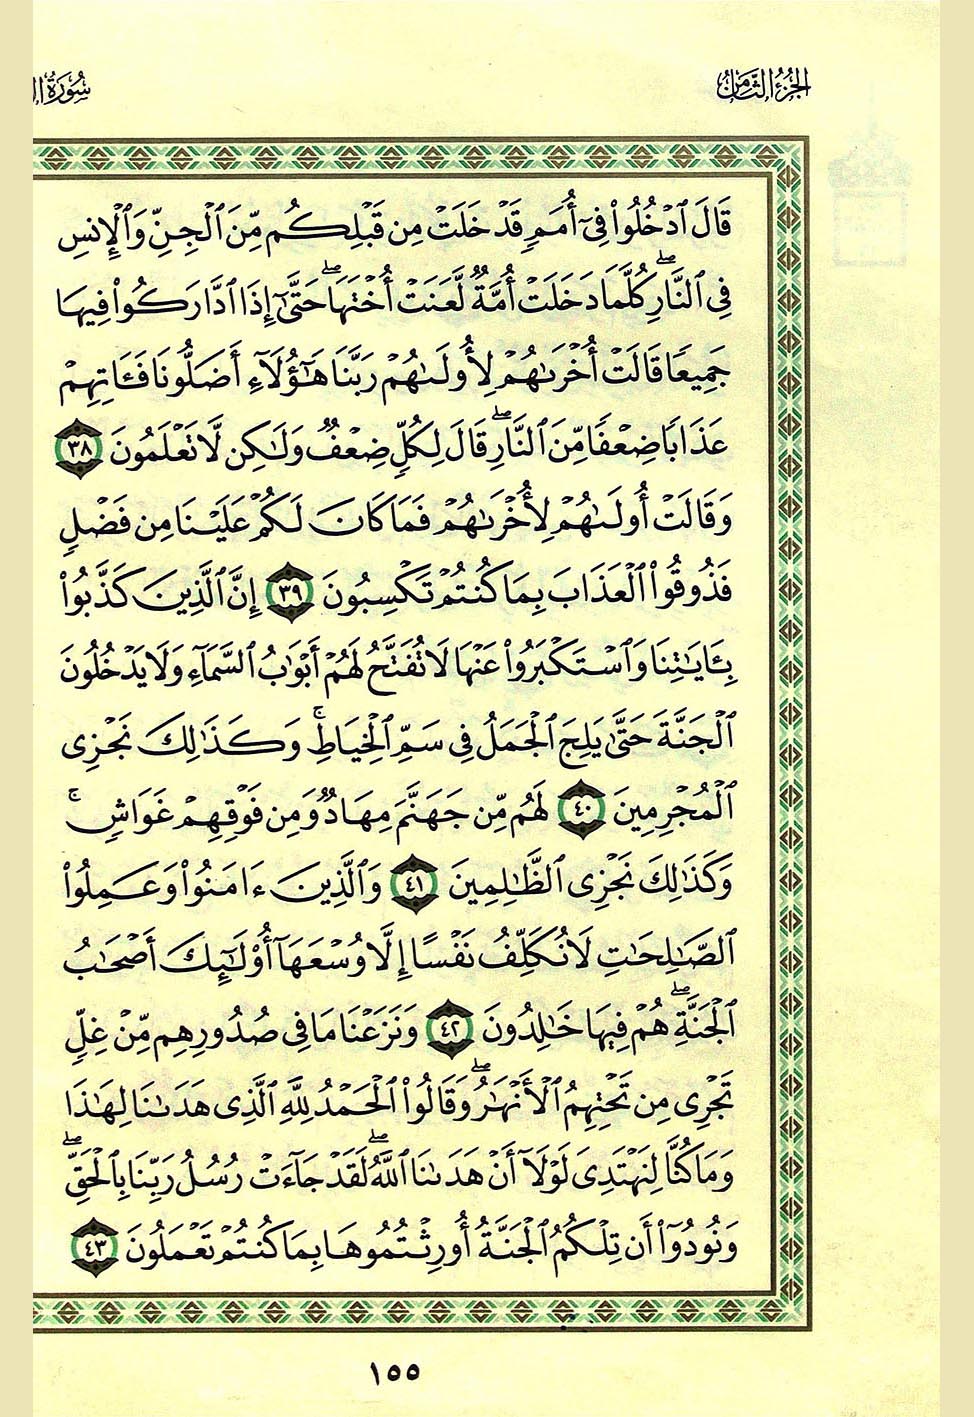 الجزء الثامن
سورة
قَالَ ٱدۡخُلُواْ فِيٓ أُمَمٖ قَدۡ خَلَتۡ مِن قَبۡلِكُم مِّنَ ٱلۡجِنِّ وَٱلۡإِنسِ
فِي ٱلنَّارِۖ كُلَّمَا دَخَلَتۡ أُمَّةٞ لَّعَنَتۡ أُخۡتَهَاۖ حَتَّىٰٓ إِذَا ٱدَّارَكُواْ فِيهَا
جَمِيعٗا قَالَتۡ أُخۡرَىٰهُمۡ لِأُولَىٰهُمۡ رَبَّنَا هَٰٓؤُلَآءِ أَضَلُّونَا فَـَٔاتِهِمۡ
عَذَابٗا ضِعۡفٗا مِّنَ ٱلنَّارِۖ قَالَ لِكُلّٖ ضِعۡفٞ وَلَٰكِن لَّا تَعۡلَمُونَ ٣٨
وَقَالَتۡ أُولَىٰهُمۡ لِأُخۡرَىٰهُمۡ فَمَا كَانَ لَكُمۡ عَلَيۡنَا مِن فَضۡلٖ
فَذُوقُواْ ٱلۡعَذَابَ بِمَا كُنتُمۡ تَكۡسِبُونَ ٣٩ إِنَّ ٱلَّذِينَ كَذَّبُواْ
بِـَٔايَٰتِنَا وَٱسۡتَكۡبَرُواْ عَنۡهَا لَا تُفَتَّحُ لَهُمۡ أَبۡوَٰبُ ٱلسَّمَآءِ وَلَا يَدۡخُلُونَ
ٱلۡجَنَّةَ حَتَّىٰ يَلِجَ ٱلۡجَمَلُ فِي سَمِّ ٱلۡخِيَاطِۚ وَكَذَٰلِكَ نَجۡزِي
ٱلۡمُجۡرِمِينَ ٤٠ لَهُم مِّن جَهَنَّمَ مِهَادٞ وَمِن فَوۡقِهِمۡ غَوَاشٖۚ
وَكَذَٰلِكَ نَجۡزِي ٱلظَّٰلِمِينَ ٤١ وَٱلَّذِينَ ءَامَنُواْ وَعَمِلُواْ
ٱلصَّٰلِحَٰتِ لَا نُكَلِّفُ نَفۡسًا إِلَّا وُسۡعَهَآ أُوْلَٰٓئِكَ أَصۡحَٰبُ
ٱلۡجَنَّةِۖ هُمۡ فِيهَا خَٰلِدُونَ ٤٢ وَنَزَعۡنَا مَا فِي صُدُورِهِم مِّنۡ غِلّٖ
تَجۡرِي مِن تَحۡتِهِمُ ٱلۡأَنۡهَٰرُۖ وَقَالُواْ ٱلۡحَمۡدُ لِلَّهِ ٱلَّذِي هَدَىٰنَا لِهَٰذَا
وَمَا كُنَّا لِنَهۡتَدِيَ لَوۡلَآ أَنۡ هَدَىٰنَا ٱللَّهُۖ لَقَدۡ جَآءَتۡ رُسُلُ رَبِّنَا بِٱلۡحَقِّۖ
وَنُودُوٓاْ أَن تِلۡكُمُ ٱلۡجَنَّةُ أُورِثۡتُمُوهَا بِمَا كُنتُمۡ تَعۡمَلُونَ ٤٣
١٥٥